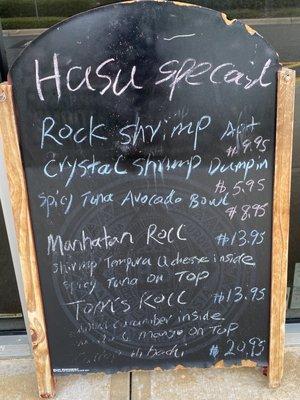 Hasu special
Rock shrimp Apt
$9.95
Crystal shrimp Dumplin
$5.95
Spicy Tuna Avocado Bowl
$8.95
Manhatan Roll $13.95
Shrimp Tempura cheese inside
spicy Tuna on Top
Tom's Roll $13.95
cucumber inside
mango on Top
hibachi $20.95